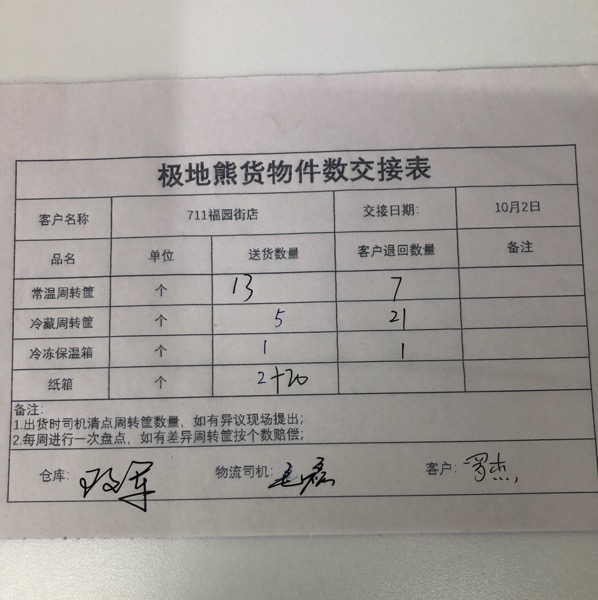 极地熊货物件数交接表
客户名称 711福园街店 交接日期: 10月2日
品名 单位 送货数量 客户退回数量 备注
常温周转筐 个 13 7
冷藏周转筐 个 5 21
冷冻保温箱 个 1 1
纸箱 个 2+20
备注:
1.出货时司机清点周转筐数量，如有异议现场提出;
2.每周进行一次盘点，如有差异周转筐按个数赔偿;
仓库: 物流司机: 客户: